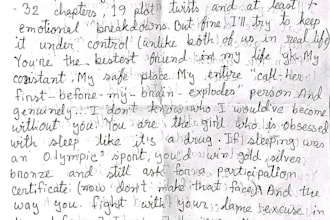 32 chapters, 19 plot twists and at least 7
emotional breakdowns. But fine, I'll try to keep
it under control (unlike both of us in real life)
You're the bestest friend in my life yk. My
constant, My safe place. My entire "call-her-
first-before-my-brain-explodes" person. And
genuinely... I don't know who I would've become
without you. You are the girl who is obsessed
with sleep like it's a drug. If sleeping was
an Olympic sport, you'd win gold, silver,
bronze and still ask for a participation
certificate (now don't make that face) And the
way you fight with your dame excuse in